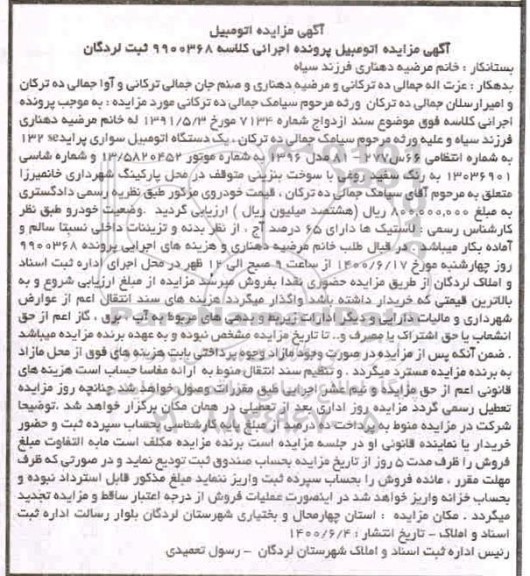 آگهی مزایده اتومبیل
آگهی مزایده اتومبیل پرونده اجرائی کلاسه ۹۹۰۰۳۶۸ ثبت لردگان
بستانکار : خانم مرضیه دهناری فرزند سیاه
بدهکار : عزت اله جمالی ده ترکانی و مرضیه دهناری و صنم جان جمالی ترکانی و آوا جمالی ده ترکان
و امیرارسلان جمالی ده ترکان ورثه مرحوم سیامک جمالی ده ترکان مورد مزایده : به موجب پرونده
اجرائی کلاسه فوق موضوع سند ازدواج شماره ۷۱۳۴ مورخ ۱۳۹۱/۵/۳ له خانم مرضیه دهناری
فرزند سیاه و علیه ورثه مرحوم سیامک جمالی ده ترکان ، یک دستگاه اتومبیل سواری پراید ۱۳۲ se
به شماره انتظامی ۶۶س۲۷۷-۸۱ مدل ۱۳۹۶ به شماره موتور ۱۳/۵۸۲۰۴۵۲ و شماره شاسی
۱۳۰۳۶۹۰۱ به رنگ سفید روغنی با سوخت بنزینی متوقف در محل پارکینگ شهرداری خانمیرزا
متعلق به مرحوم آقای سیامک جمالی ده ترکان ، قیمت خودروی مزکور طبق نظریه رسمی دادگستری
به مبلغ ۸۰۰,۰۰۰,۰۰۰ ریال (هشتصد میلیون ریال ) ارزیابی گردید .وضعیت خودرو طبق نظر
کارشناس رسمی : لاستیک ها دارای ۶۵ درصد آج ، از نظر بدنه و تزیینات داخلی نسبتا سالم و
آماده بکار میباشد .در قبال طلب خانم مرضیه دهناری و هزینه های اجرایی پرونده ۹۹۰۰۳۶۸
روز چهارشنبه مورخ ۱۴۰۰/۶/۱۷ از ساعت ۹ صبح الی ۱۲ ظهر در محل اجرای اداره ثبت اسناد
و املاک لردگان از طریق مزایده حضوری نقدا بفروش میرسد مزایده از مبلغ ارزیابی شروع و به
بالاترین قیمتی که خریدار داشته باشد واگذار میگردد هزینه های سند انتقال اعم از عوارض
شهرداری و مالیات دارایی و دیگر ادارات زیربط و بدهی های مربوط به آب ، برق ، گاز اعم از حق
انشعاب یا حق اشتراک یا مصرف و.. تا تاریخ مزایده مشخص نبوده و به عهده برنده مزایده میباشد
. ضمن آنکه پس از مزایده در صورت وجود مازاد وجوه پرداختی بابت هزینه های فوق از محل مازاد
به برنده مزایده مسترد میگردد . و تنظیم سند انتقال منوط به ارائه مفاسا حساب است هزینه های
قانونی اعم از حق مزایده و نیم عشر اجرایی طبق مقررات وصول خواهد شد چنانچه روز مزایده
تعطیل رسمی گردد مزایده روز اداری بعد از تعطیلی در همان مکان برگزار خواهد شد .توضیحا
شرکت در مزایده منوط به پرداخت ده درصد از مبلغ پایه کارشناسی بحساب سپرده ثبت و حضور
خریدار یا نماینده قانونی او در جلسه مزایده است برنده مزایده مکلف است مابه التفاوت مبلغ
فروش را ظرف مدت ۵ روز از تاریخ مزایده بحساب صندوق ثبت تودیع نماید و در صورتی که ظرف
مهلت مقرر ، مانده فروش را بحساب سپرده ثبت واریز ننماید مبلغ مذکور قابل استرداد نبوده و
بحساب خزانه واریز خواهد شد در اینصورت عملیات فروش از درجه اعتبار ساقط و مزایده تجدید
میگردد . مکان مزایده : استان چهارمحال و بختیاری شهرستان لردگان بلوار رسالت اداره ثبت
اسناد و املاک - تاریخ انتشار : ۱۴۰۰/۶/۴
رئیس اداره ثبت اسناد و املاک شهرستان لردگان - رسول تعمیدی